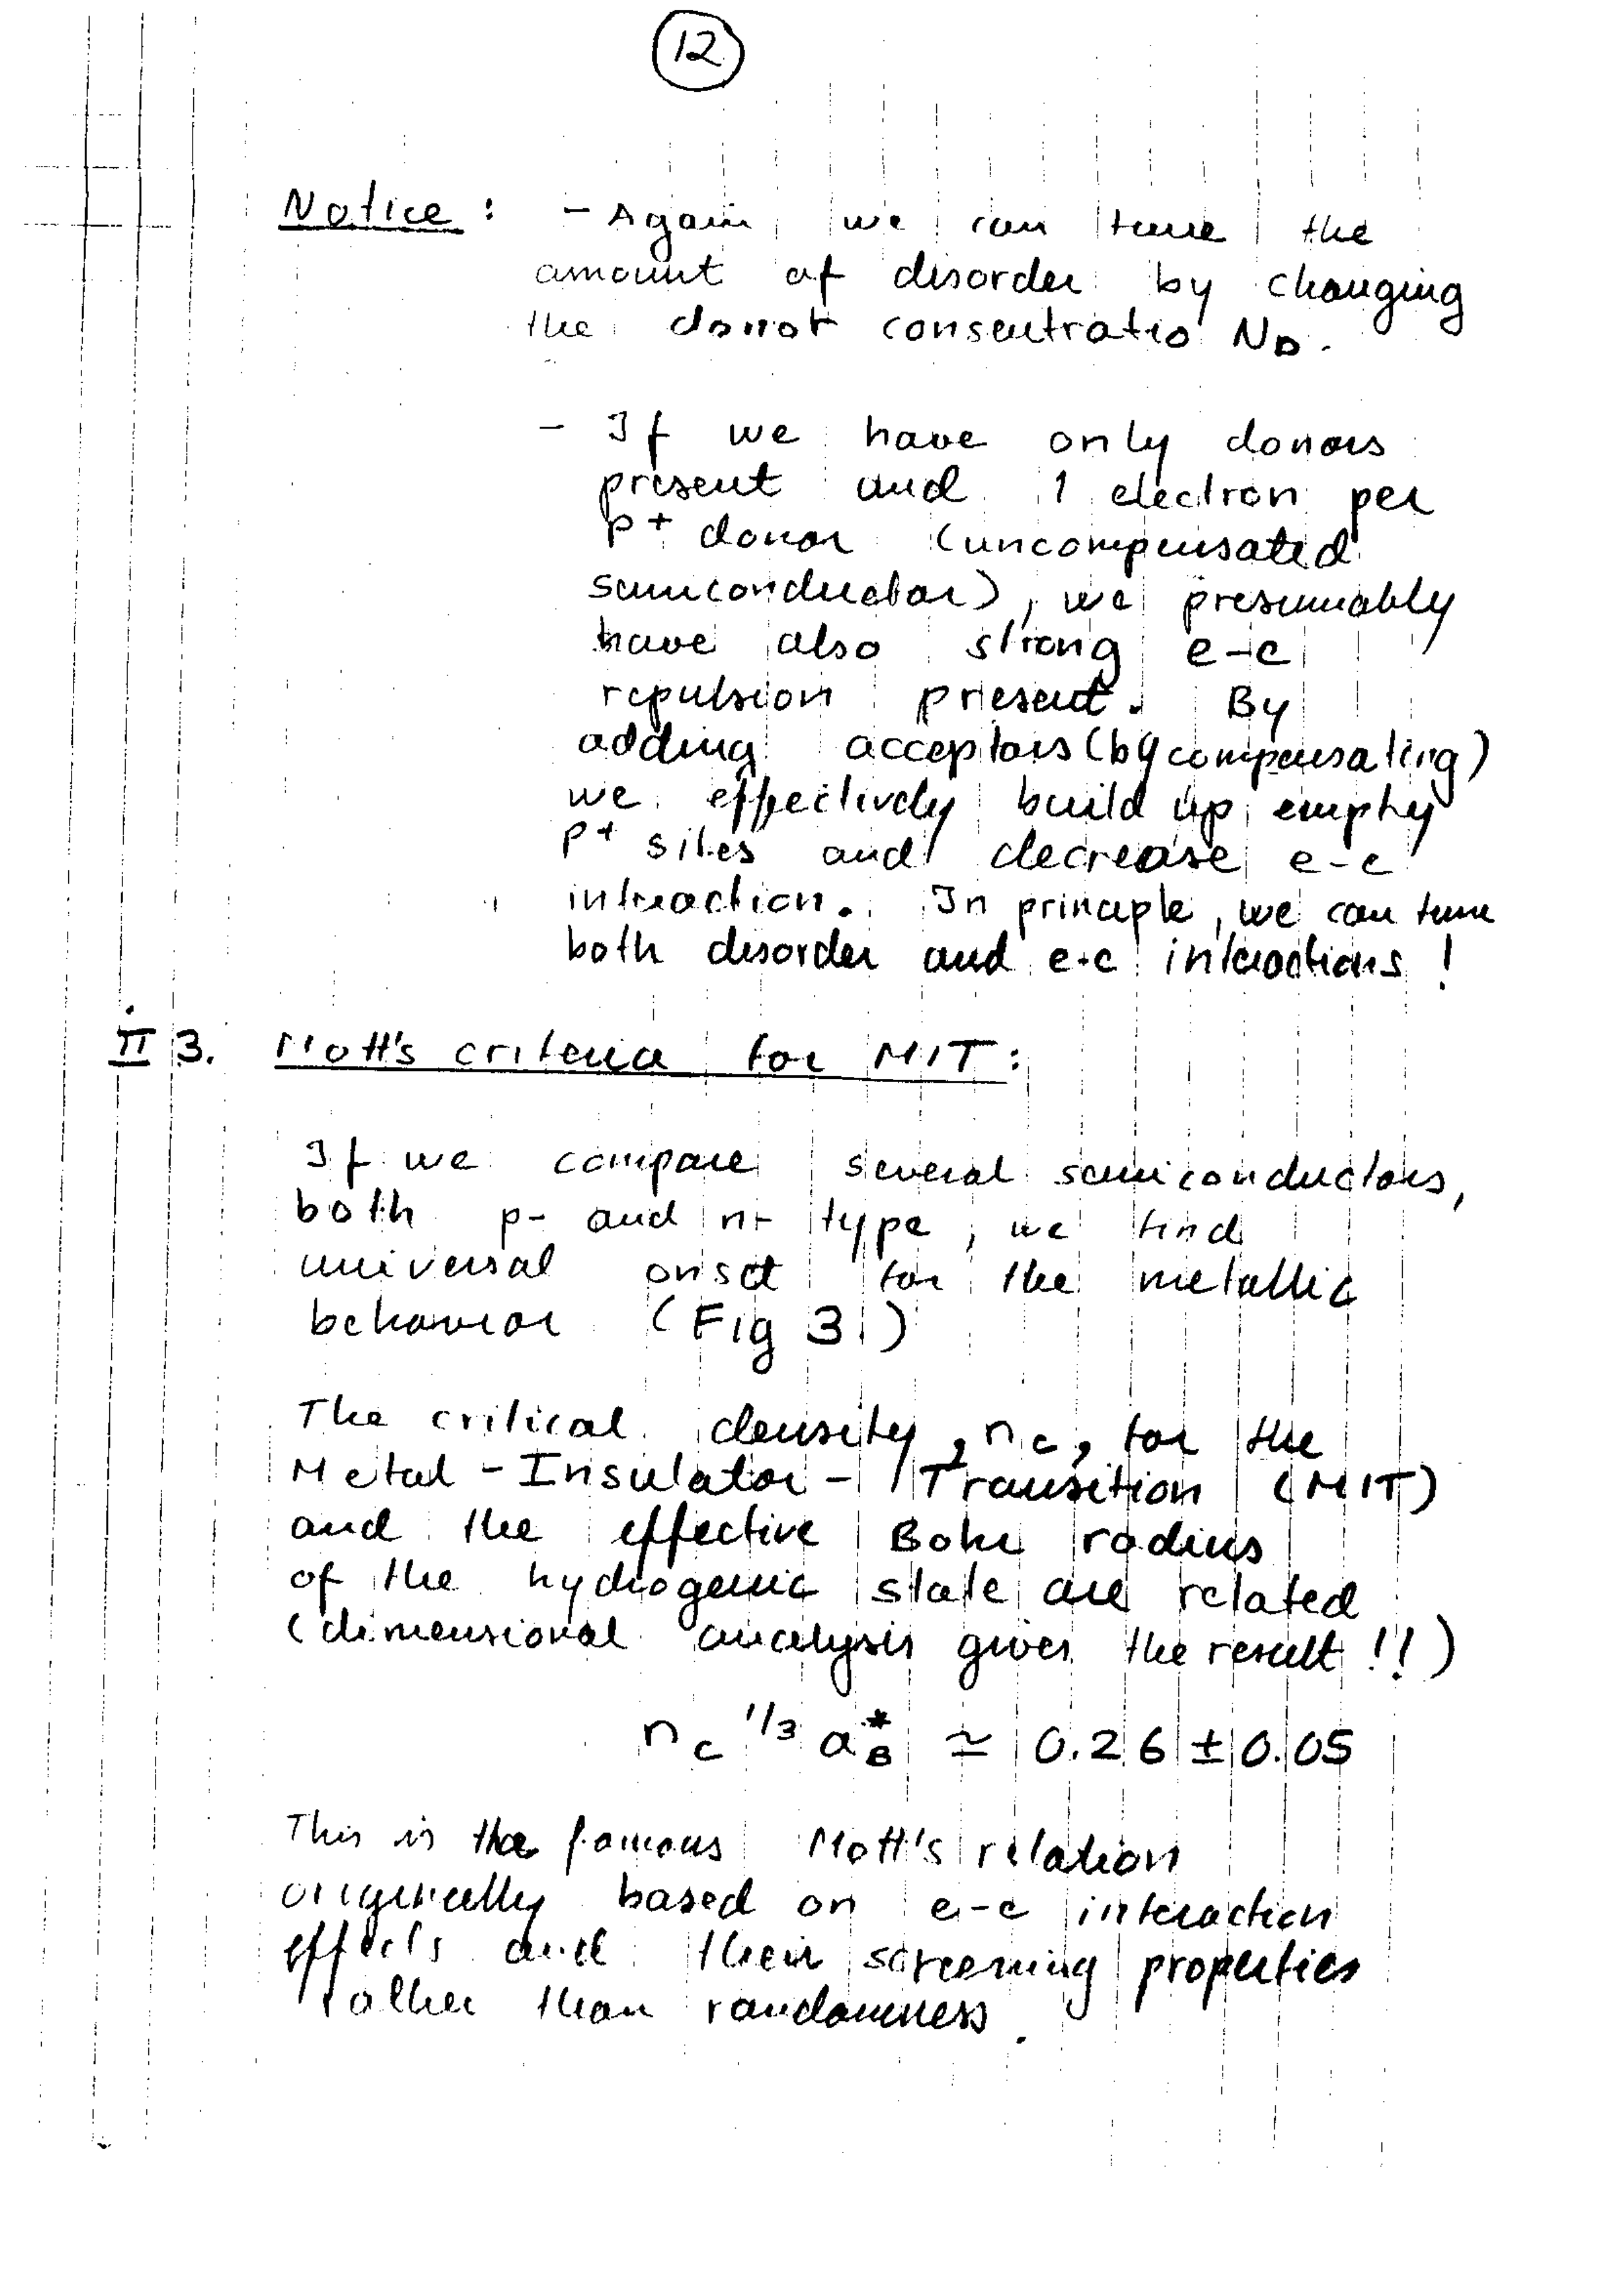 12
Notice : - Again we can tune the
amount of disorder by changing
the donor consentratio N_D.
- If we have only donors
present and 1 electron per
P+ donor (uncompensated
semiconductor), we presumably
have also strong e-e
repulsion present. By
adding acceptors (by compensating)
we effectively build up empty
P+ sites and decrease e-e
interaction. In principle, we can tune
both disorder and e-e interactions !
II 3. Mott's criteria for MIT :
If we compare several semiconductors,
both p- and n- type, we find
universal onset for the metallic
behavior (Fig 3)
The critical density, n_c, for the
Metal-Insulator-Transition (MIT)
and the effective Bohr radius
of the hydrogenic state are related
(dimensional analysis gives the result !!)
n_c^{1/3} a_B^* ≃ 0.26 ± 0.05
This is the famous Mott's relation
originally based on e-e interaction
effects and their screening properties
rather than randomness.